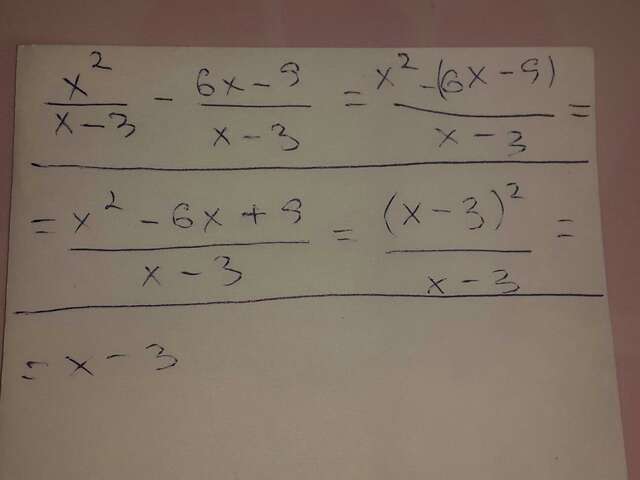 x²/(x-3) - (6x-9)/(x-3) = (x²-(6x-9))/(x-3) =
= (x²-6x+9)/(x-3) = (x-3)²/(x-3) =
= x-3